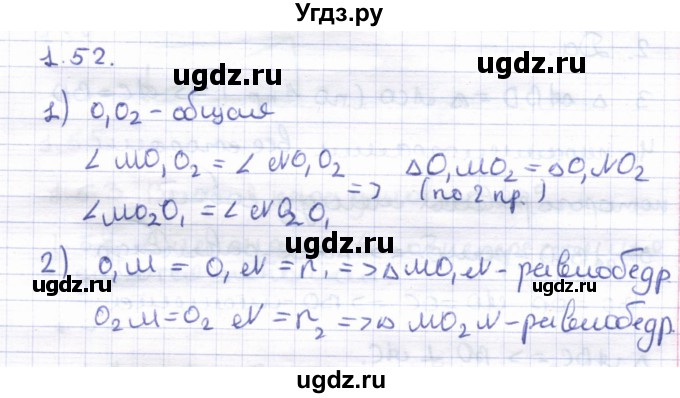 Угдз.ру
1.52.
ugdz.ru ugdz.ru
1) O₁O₂ - общая
∠ MO₁O₂ = ∠ NO₁O₂ => △O₁MO₂ = △O₁NO₂
∠MO₂O₁ = ∠NO₂O₁ (по 2 пр.)
ugdz.ru
2) O₁M = O₁N = r₁ => △ MO₁N - равнобедр
ugdz.ru ugdz.ru
O₂M = O₂N = r₂ => △ MO₂N - равнобедр.
ugdz.ru